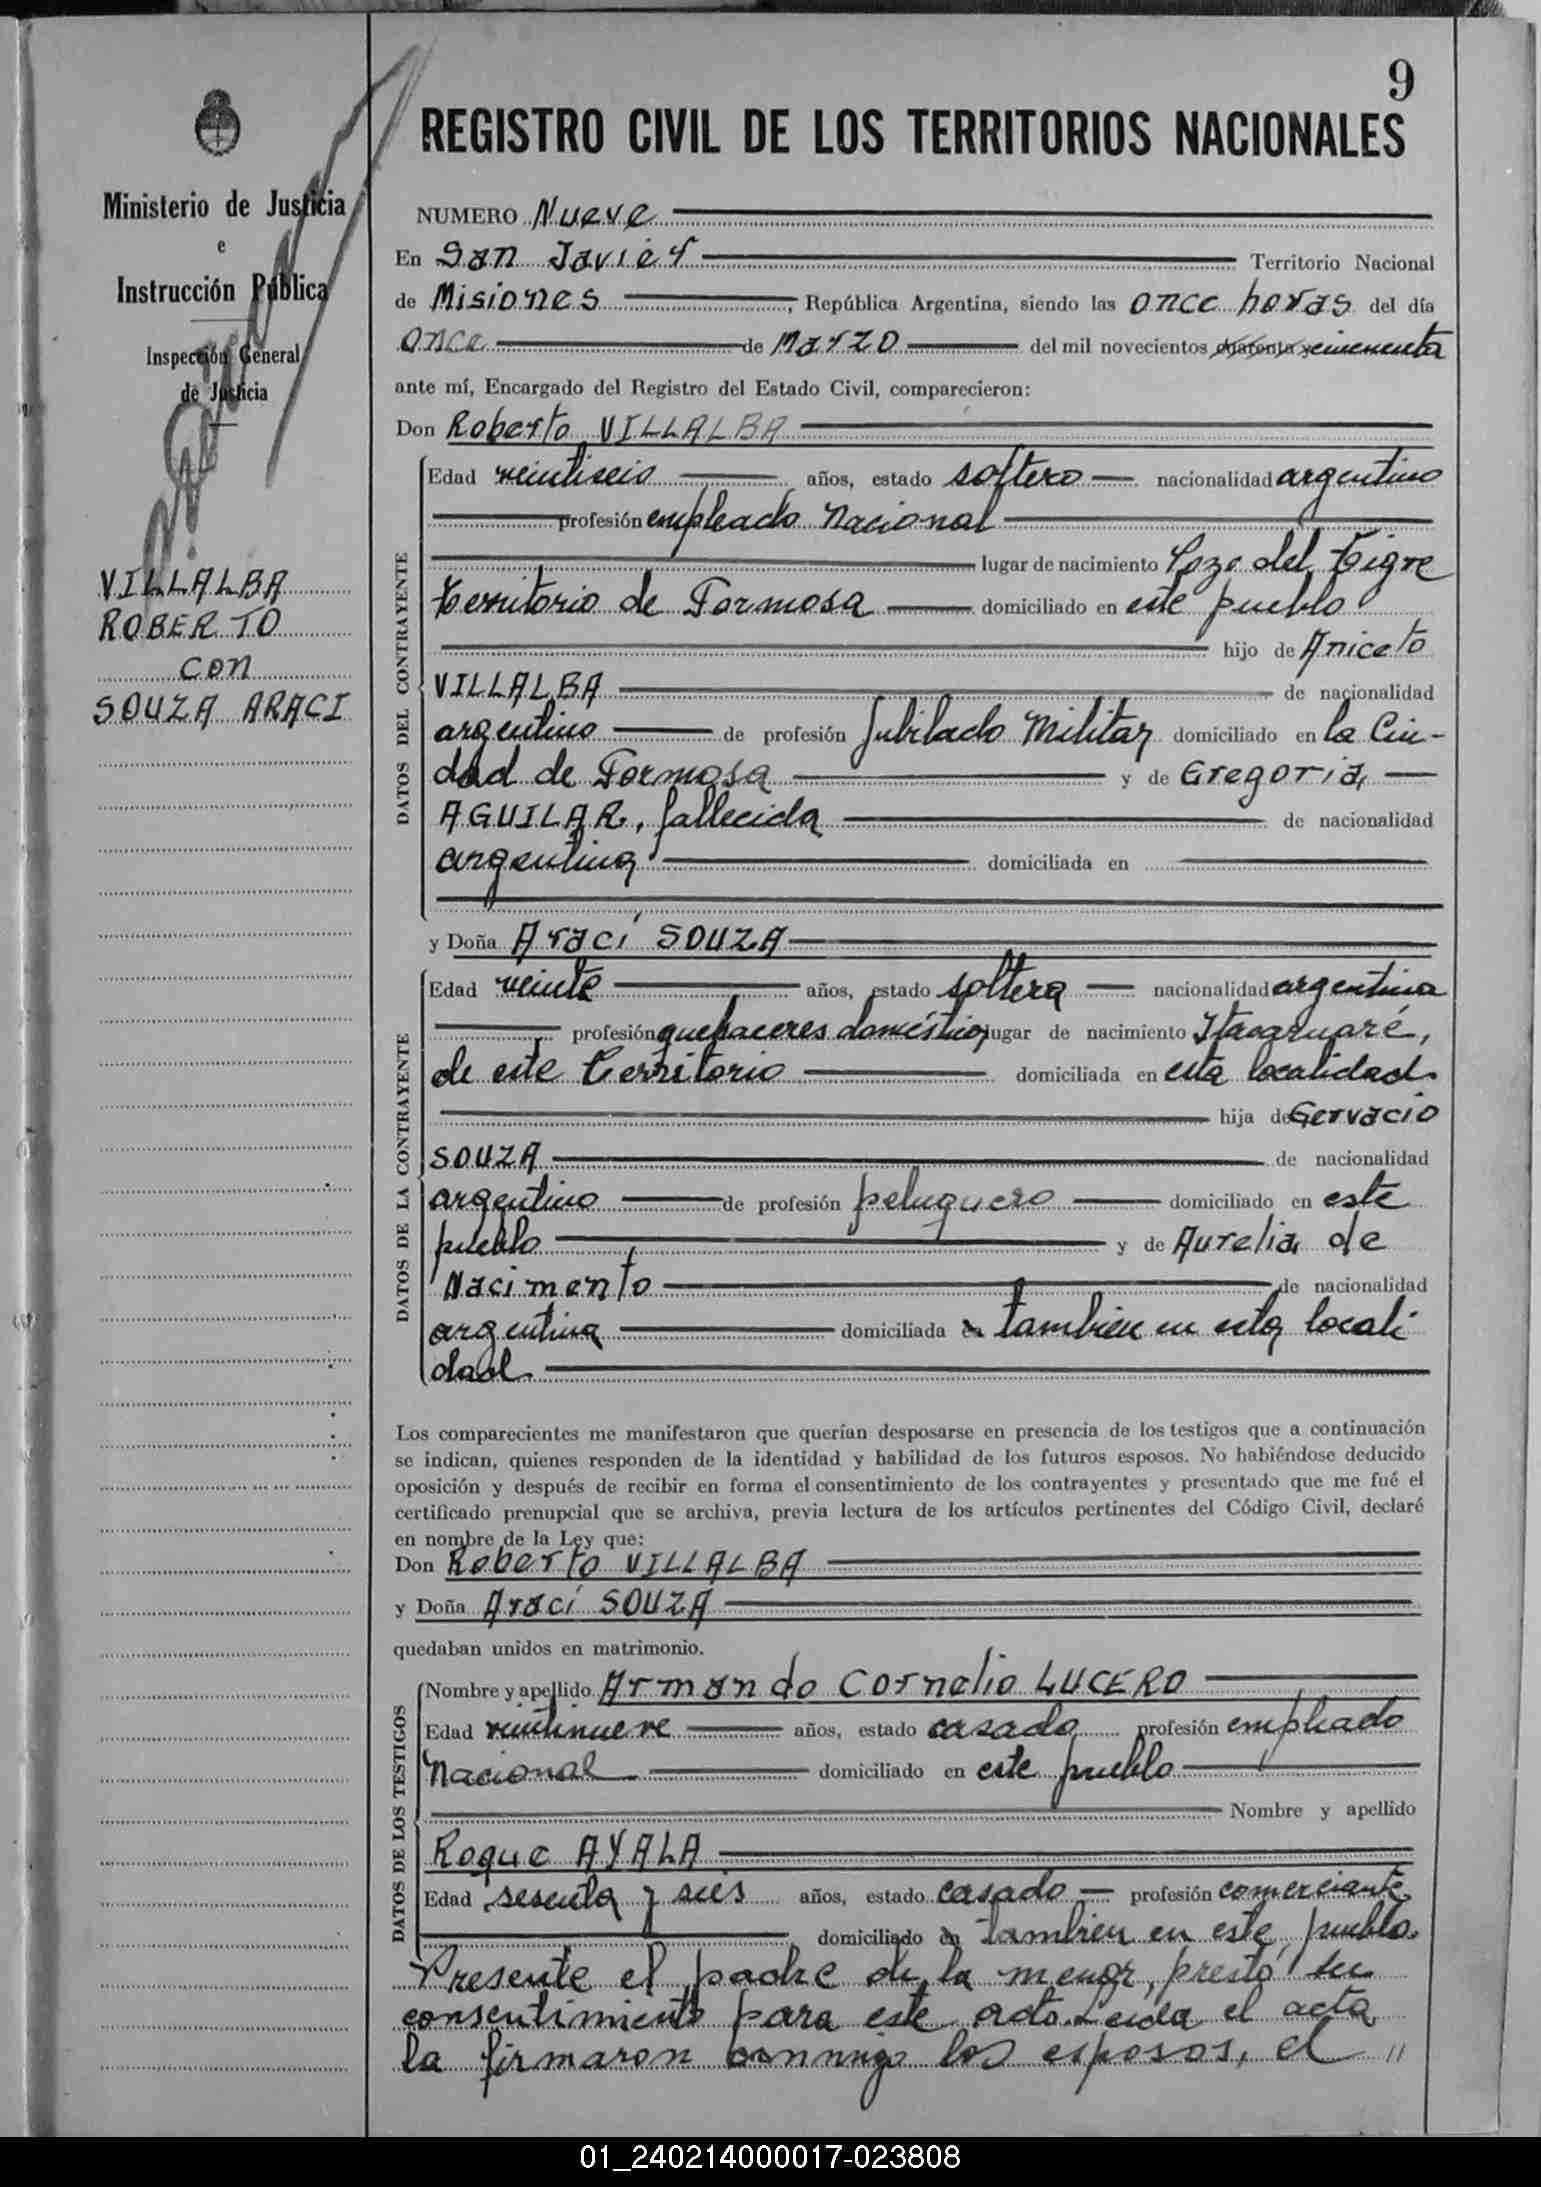 9
REGISTRO CIVIL DE LOS TERRITORIOS NACIONALES
Ministerio de Justicia
e
Instrucción Pública
Inspección General
de Justicia
VILLALBA
ROBERTO
con
SOUZA ARACI
NUMERO Nueve
En San Javier Territorio Nacional
de Misiones, República Argentina, siendo las once horas del día
once de Marzo del mil novecientos cuarenta y cincuenta
ante mí, Encargado del Registro del Estado Civil, comparecieron:
Don Roberto VILLALBA
DATOS DEL CONTRAYENTE
Edad veintiseis años, estado soltero nacionalidad argentino
profesión empleado Nacional
lugar de nacimiento Pozo del Tigre
territorio de Formosa domiciliado en este pueblo
hijo de Aniceto
VILLALBA de nacionalidad
argentino de profesión Jubilado Militar domiciliado en la Ciu-
dad de Formosa y de Gregoria
AGUILAR, fallecida de nacionalidad
argentina domiciliada en
y Doña Arací SOUZA
DATOS DE LA CONTRAYENTE
Edad veinte años, estado soltera nacionalidad argentina
profesión quehaceres domésticos lugar de nacimiento Itacaruaré,
de este Territorio domiciliada en esta localidad.
hija de Gervacio
SOUZA de nacionalidad
argentino de profesión peluquero domiciliado en este
pueblo y de Aurelia de
Nacimento de nacionalidad
argentina domiciliada en tambien en esta locali
dad.
Los comparecientes me manifestaron que querían desposarse en presencia de los testigos que a continuación
se indican, quienes responden de la identidad y habilidad de los futuros esposos. No habiéndose deducido
oposición y después de recibir en forma el consentimiento de los contrayentes y presentado que me fué el
certificado prenupcial que se archiva, previa lectura de los artículos pertinentes del Código Civil, declaré
en nombre de la Ley que:
Don Roberto VILLALBA
y Doña Arací SOUZA
quedaban unidos en matrimonio.
DATOS DE LOS TESTIGOS
Nombre y apellido Armando Cornelio LUCERO
Edad veintinueve años, estado casado profesión empleado
Nacional domiciliado en este pueblo
Nombre y apellido
Roque AYALA
Edad sesenta y seis años, estado casado profesión comerciante
domiciliado en tambien en este pueblo.
Presente el padre de la menor, prestó su
consentimiento para este acto. Leida el acta
la firmaron conmigo los esposos, el "
01_240214000017-023808